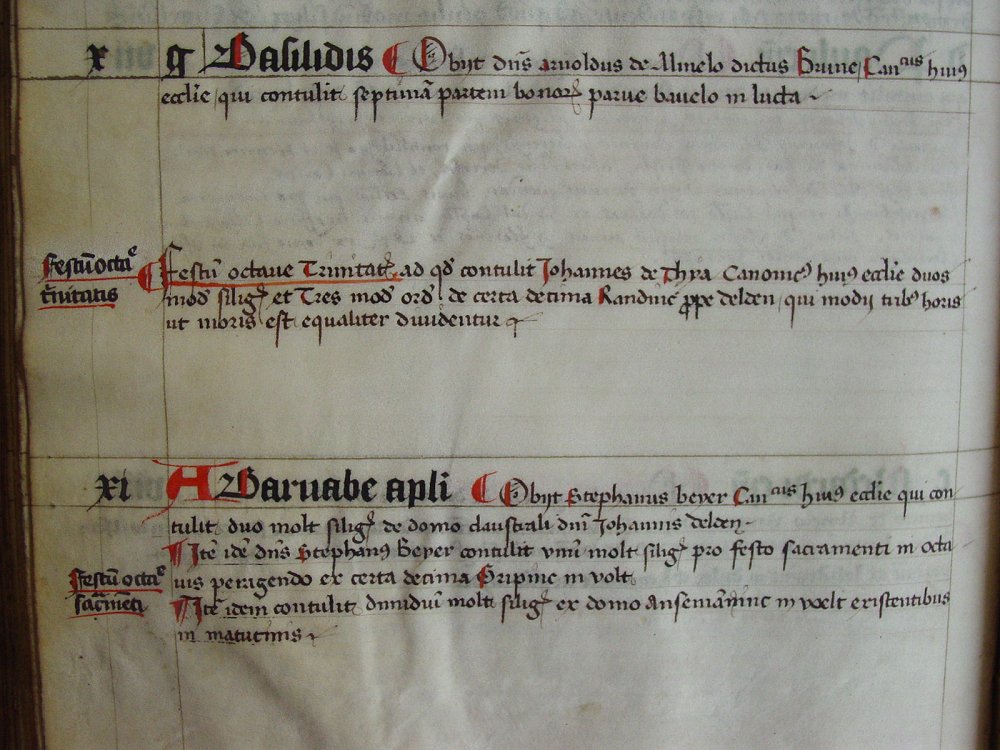 x g Basilidis Obijt dn̄s Arnoldus de Almelo dictus Brune Can^cus hui9
eccl̄ie qui contulit septimā partem bonor̄ parue bauelo in lucta
festū octāe
t̄initatis
Festū octaue Trinitat̄ ad qd̄ contulit Johannes de Thya Canonic9 hui9 eccl̄ie duos
mod̄ siliḡ et Tres mod̄ ord̄ de certa decima Randinc ꝓpe delden qui modij trib9 horis
ut moris est equaliter diuidentur
xi A Barnabe apl̄i Obijt Stephanus beyer Can^cus hui9 eccl̄ie qui con
tulit duo molt siliḡ de domo claustrali dn̄i Johannis delden
Itē idē dn̄s Stephan9 Beyer contulit vnū molt siliḡ pro festo sacramenti in octa
festū octāe
sac̄mēti
uis peragendo ex certa decima Gripinc in volt
Itē idem contulit dimidiū molt siliḡ ex domo in voelt existentibus
in matutinis